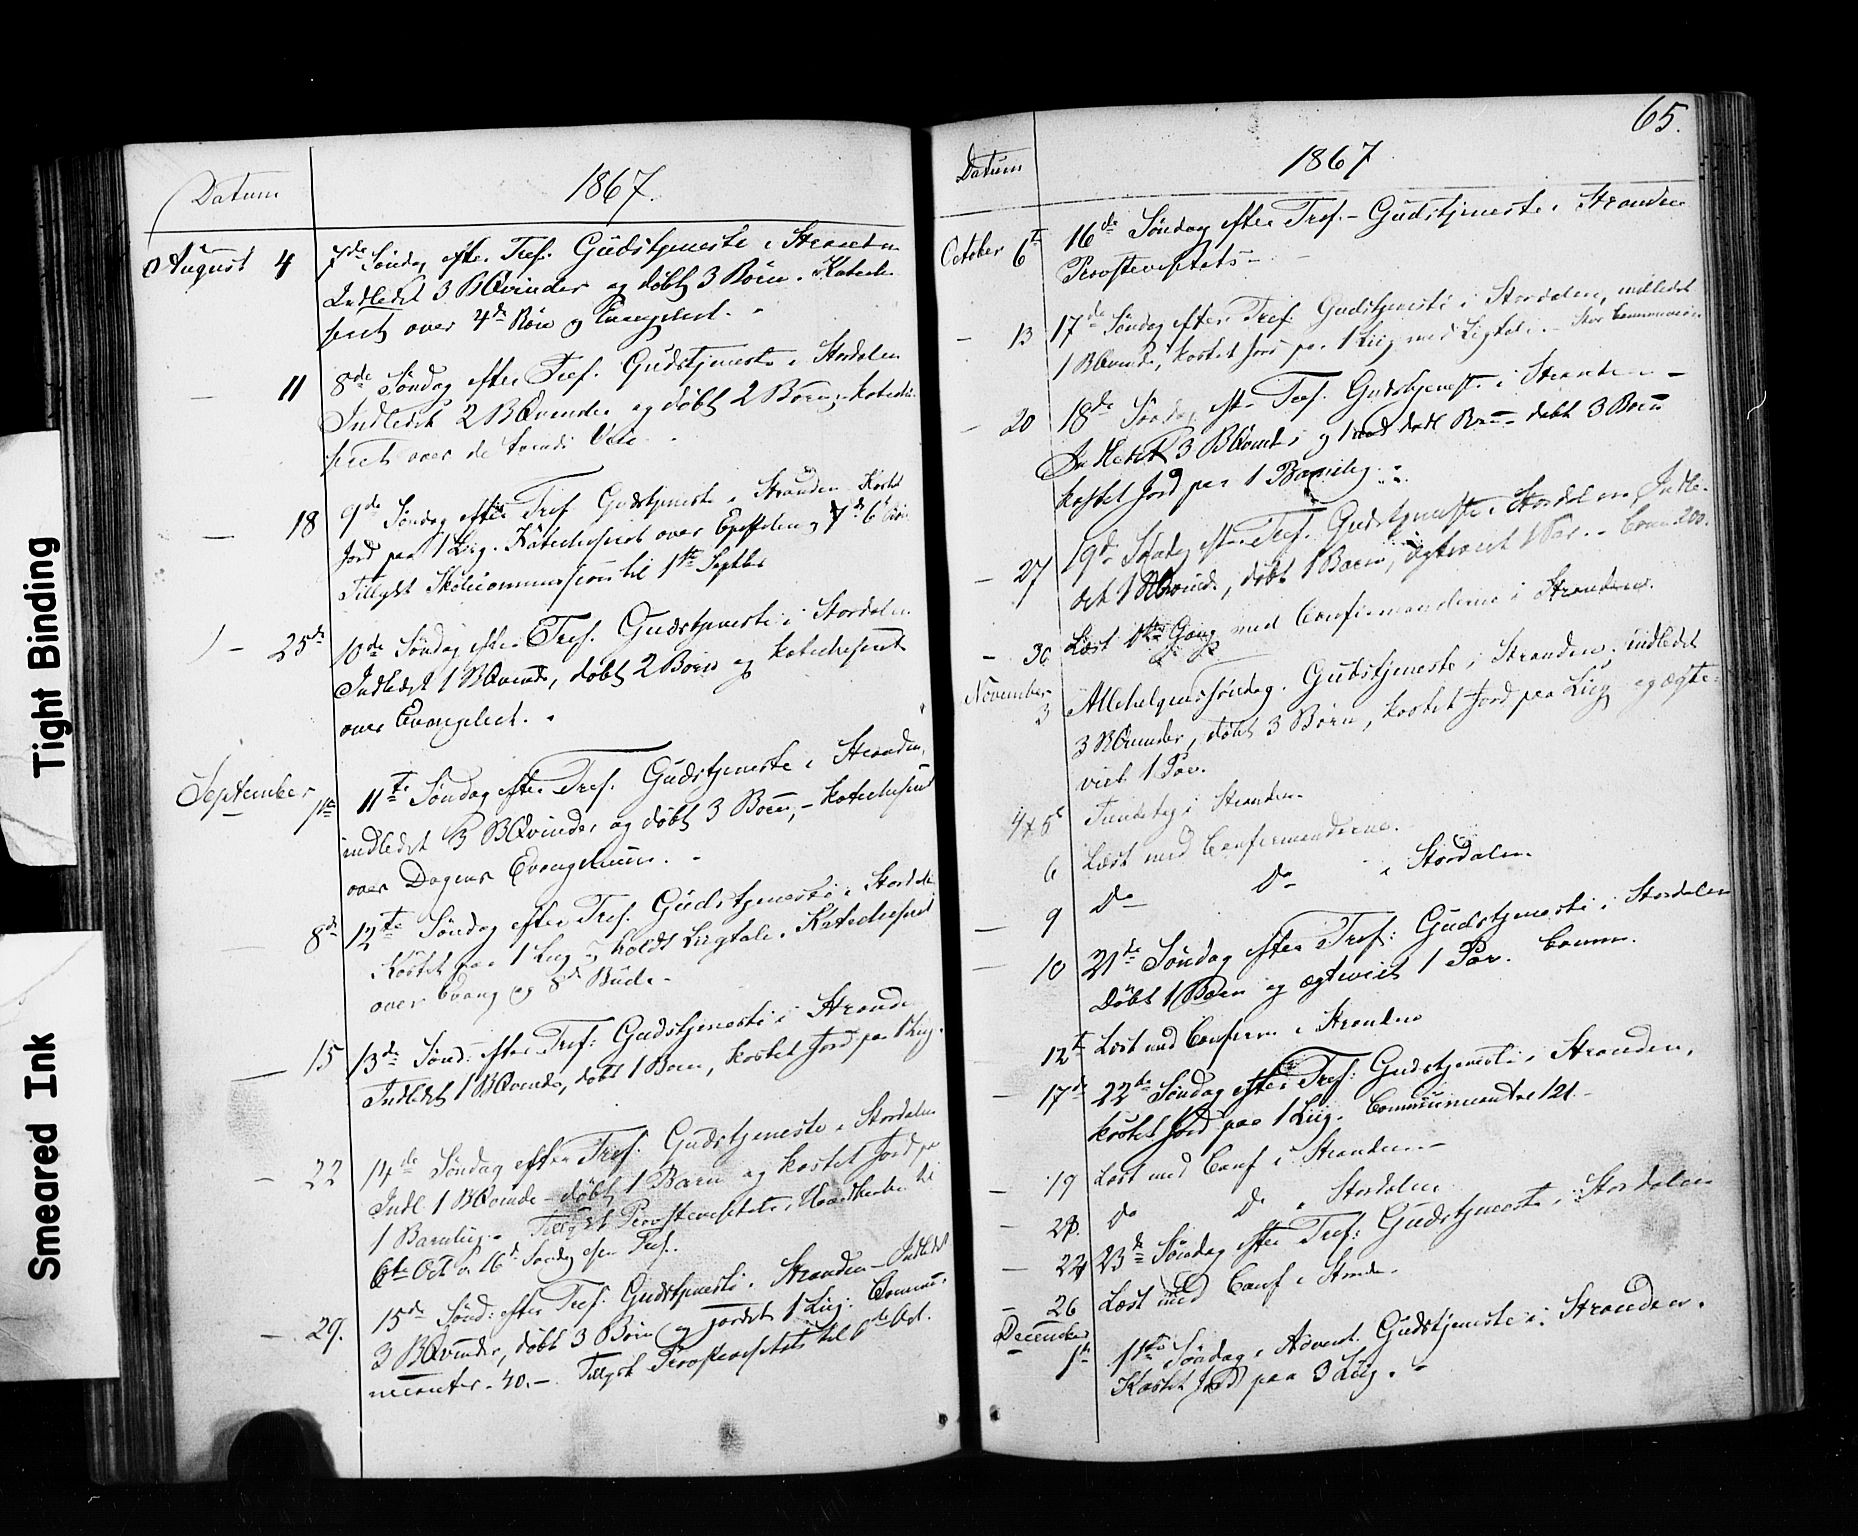 Tight Binding
Smeared Ink
Datum 1867.
August 4 7de Søndag efter Tref. Gudstjeneste i Stranden
Indledet 3 BQvinder og døbt 3 Børn. Kateche-
seret over 4de Bøn og Evangeliet.
11 8de Søndag efter Tref. Gudstjeneste i Stordalen
Indledet 2 BQvinder og døbt 2 Børn, kateche-
seret over de
18 9de Søndag efter Tref Gudstjeneste i Stranden Kastet
Jord paa 1 Liig. Katecheseret over Epistelen og
Tillyst Skolecommission til 1ste Septbr
25de 10de Søndag efter Tref. Gudstjeneste i Stordalen
Indledet 1 BQvinde, døbt 2 Børn og katecheseret
over Evangeliet.
September 1ste 11te Søndag efter Tref. Gudstjeneste i Stranden,
indledet 3 BQvinder og døbt 3 Børn, - katecheseret
over Dagens Evangelium.
8de 12te Søndag efter Tref. Gudstjeneste i Stordalen
Kastet paa 1 Liig og holdt Liigtale. Katecheseret
over Evang og 8de Bud.
15 13de Sønd: efter Tref: Gudstjeneste i Stranden
Indledet 1 BQvinde, døbt 1 Barn, kastet Jord paa 1 Liig.
22 14de Søndag efter Tref. Gudstjeneste i Stordalen
Indl. 1 BQvinde - døbt 1 Barn og kastet Jord paa
1 Barnliig. Tillyst Provstevisitats i
6te Oct 16de Søndag efter Tref.
29. 15de Sønd: efter Tref. Gudstjeneste i Stranden - Indledet
3 BQvinder, døbt 3 Børn og jordet 1 Liig. Commu-
nicanter - 40. - Tillyst Provstevisitats til 6te Oct.
65.
Datum 1867
October 6te 16de Søndag efter Tref. - Gudstjeneste i Stranden
Provstevisitats -
13 17de Søndag efter Tref. Gudstjeneste i Stordalen, indledet
1 BQvinde, kastet Jord paa 1 Liig med Ligtale. -
20 18de Søndag efter Tref. Gudstjeneste i Stranden -
Indledet 3 BQvinder og 1 med dødt Barn - døbt 3 Børn
kastet Jord paa 1 Barnelig.
27 19de Søndag efter Tref. Gudstjeneste i Stordalen, Indle-
det 1 BQvinde, døbt 1 Barn, ægteviet 1 Par. - Comm. 200.
30 Læst 1ste Gang med Confirmanderne i Stranden.
November 3 Allehelgenssøndag. Gudstjeneste i Stranden. indledet
3 BQvinder, døbt 3 Børn, kastet Jord paa Liig og ægte-
viet 1 Par.
4 & 5 i Stranden
6 Læst med Confirmanderne.
9 Do Do i Stordalen
10 21de Søndag efter Tref: Gudstjeneste i Stordalen
Døbt 1 Barn og ægteviet 1 Par. Comm.
12te Læst med Confirm i Stranden
17de 22de Søndag efter Tref: Gudstjeneste i Stranden,
kastet Jord paa 1 Liig. Communicantre 121. -
19 Læst med Conf i Stranden -
Do Do i Stordalen
24 23de Søndag efter Tref: Gudstjeneste i Stordalen
26 Læst med Conf i Strande.
December 1ste 1ste Søndag i Advent. Gudstjeneste i Stranden.
Kastet Jord paa 3 Liig.